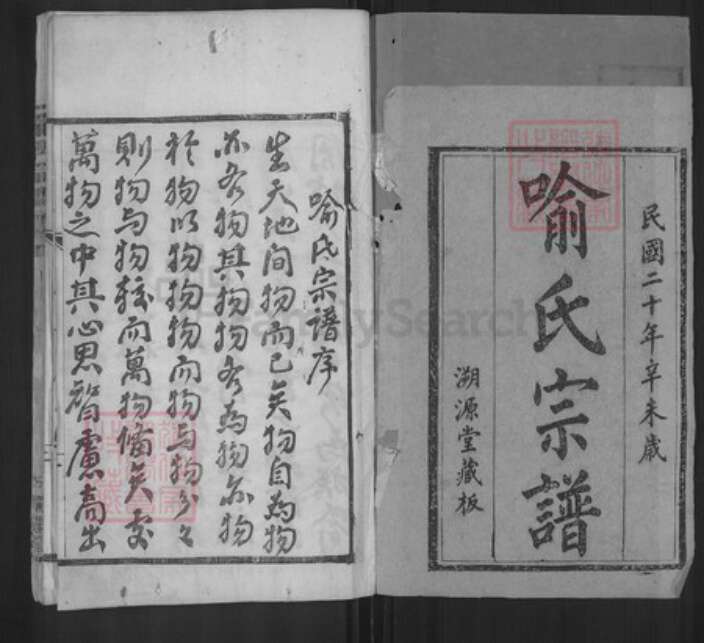 民國二十年辛未歲
喻氏宗譜
溯源堂藏板
喻氏宗譜序
生天地间物而已矣物自為物
亦各物其物物各為物亦物
於物以物物物而物与物分々
則物与物接而萬物備矣
萬物之中其心思智慮高出
FamilySearch